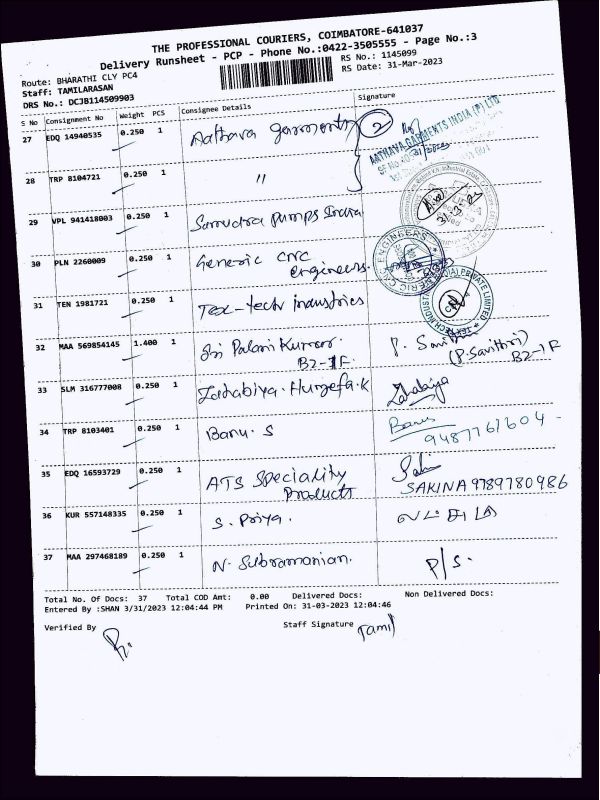 THE PROFESSIONAL COURIERS, COIMBATORE-641037
Delivery Runsheet - PCP - Phone No.:0422-3505555 - Page No.:3
Route: BHARATHI CLY PC4
RS No.: 1145099
Staff: TAMILARASAN
RS Date: 31-Mar-2023
DRS No.: DCJB114509903
S No Consignment No Weight PCS Consignee Details Signature
27 EDQ 14940535 0.250 1 Aathava garments 2
AATHAVA GARMENTS INDIA (P) LTD
28 TRP 8104721 0.250 1 "
29 VPL 941418003 0.250 1 Samudra Pumps India
31-3-23
30 PLN 2260009 0.250 1 Generic CNC
Engineers.
31 TEN 1981721 0.250 1 Tex-tech industries
32 MAA 569854145 1.400 1 Sri Palani Kumar. P. Savithri
B2-1F. (P.Savithri)
B2-1F
33 SLM 316777008 0.250 1 Zahabiya. Huzefa.K Zahabiya
34 TRP 8103401 0.250 1 Banu. S Banu
9487761604
35 EDQ 16593729 0.250 1 ATS Speciality
Products SAKINA 9789780986
36 KUR 557148335 0.250 1 S. Priya.
37 MAA 297468189 0.250 1 N. Subramanian. P/S.
Total No. Of Docs: 37 Total COD Amt: 0.00 Delivered Docs: Non Delivered Docs:
Entered By :SHAN 3/31/2023 12:04:44 PM Printed On: 31-03-2023 12:04:46
Verified By Staff Signature Tamil